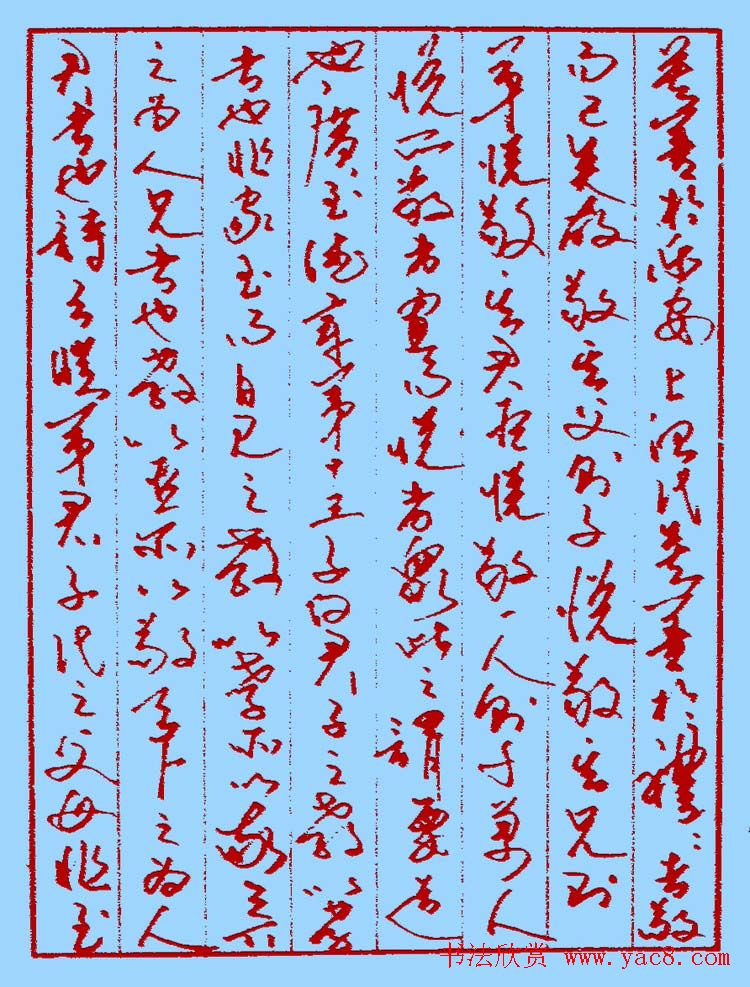 莫善於樂安上治民莫善於禮〻者敬
而已矣故敬其父則子悅敬其兄則
弟悅敬其君臣悅敬一人則千萬人
悅所敬者寡而悅者眾此之謂要道
也廣至德章第十三子曰君子之教以孝
者也非家至而日見之教以孝所以敬天下
之為人兄者也教以臣所以敬天下之為人
君者也詩云愷弟君子民之父母非至
书法欣赏 www.yac8.com